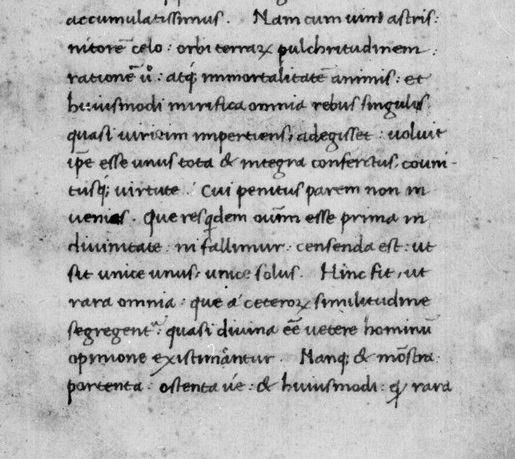 accumulatissimus. Nam cum vim astris:
nitorē celo: orbi terraꝝ pulchritudinem:
rationē v̊: atq; immortalitatē animis: et
huiusmodi mirifica omnia rebus singulis
quasi viritim impertiens, adegisset: voluit
ip̄e esse unus tota & integra confertus, couni-
tusq; virtute. Cui penitus parem non in
venias. Que res qdem ouīm esse prima in
divinitate: ni fallimur: censenda est: ut
sit unice unus, unice solus. Hinc fit, ut
rara omnia: que á ceteroꝝ similitudine
segregentᷣ: quasi divina eē vetere hominū
opinione existimantur. Nanq; & mōstra
portenta: ostenta ué: & huiusmodi: ꝙ rara